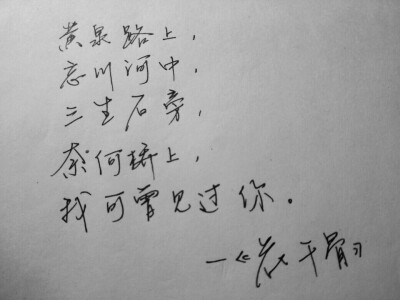 黄泉路上，
忘川河中，
三生石旁，
奈何桥上，
我可曾见过你。
—《花千骨》